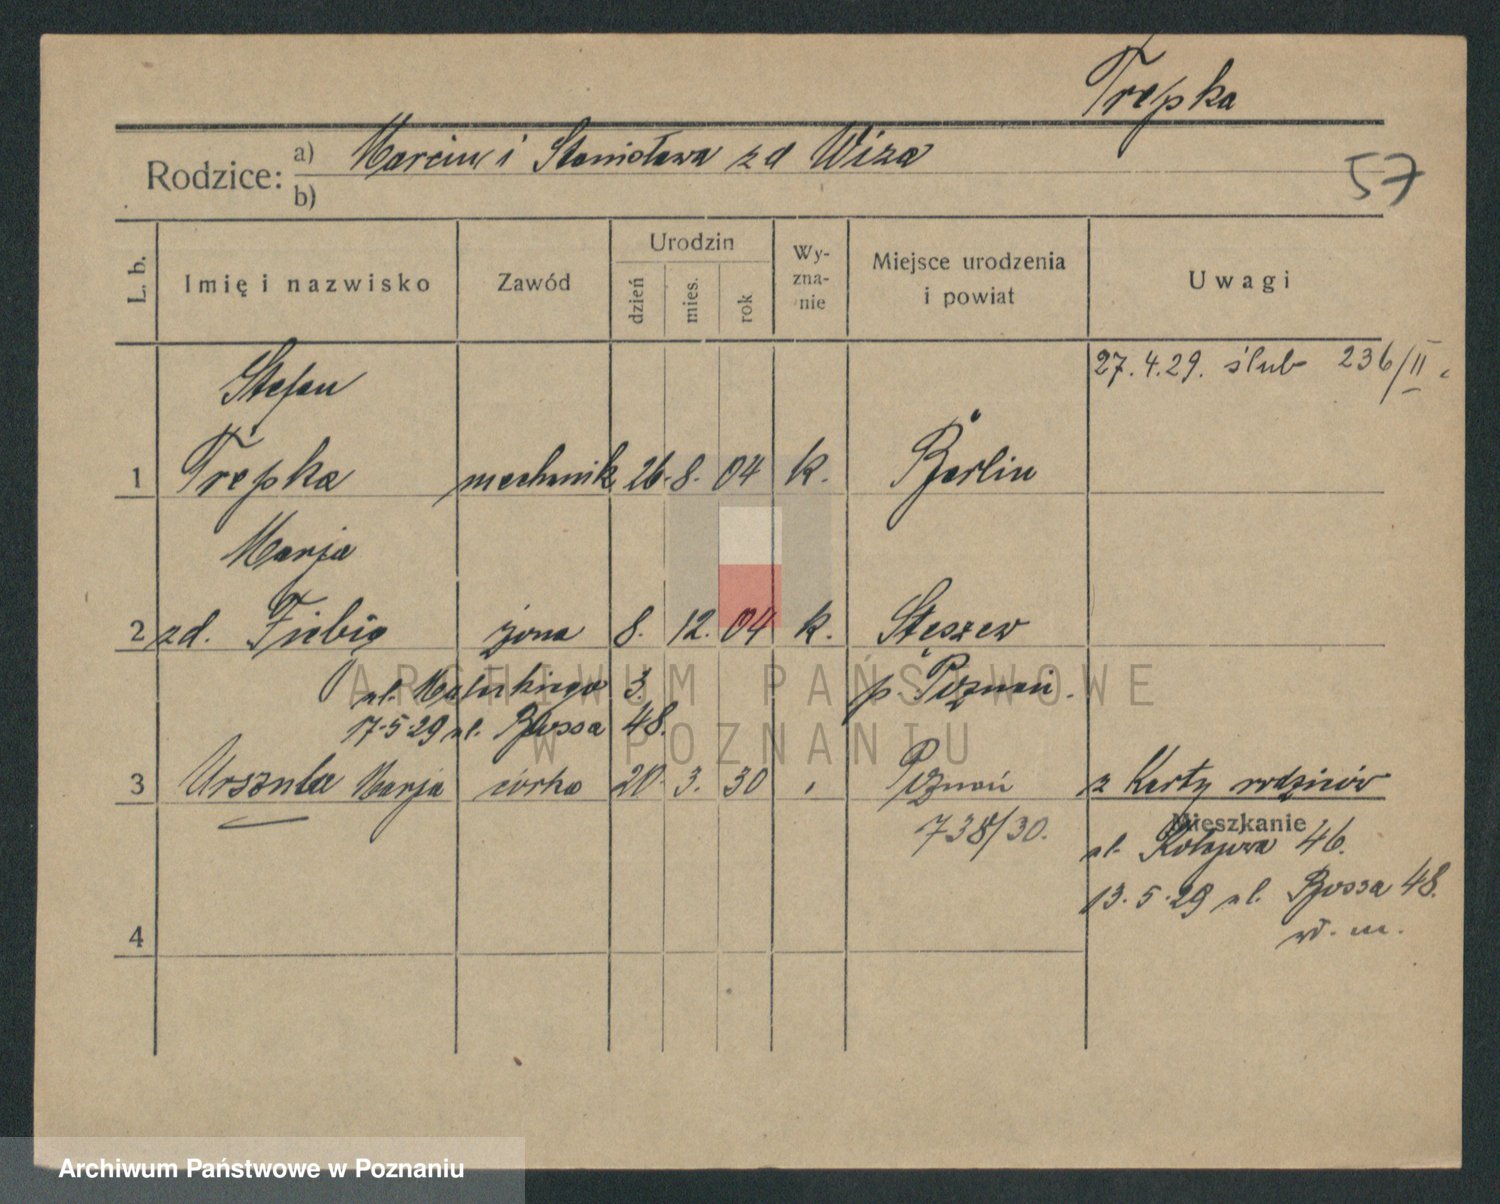 Trepka
Rodzice: a) Marcin i Stanisława zd Wiza
b)
57
L. b. Imię i nazwisko Zawód Urodzin dzień mies. rok Wy-zna-nie Miejsce urodzenia i powiat Uwagi
27.4.29. ślub 236/II.
Stefan
1 Trepka mechanik 26. 8. 04 k. Berlin
Marja
2 zd. Fiebig żona 8. 12. 04 k. Stęszew
ul. 3. p. Poznań.
17.5.29 ul. Bossa 48.
3 Urszula Marja córka 20. 3. 30 Poznań z Karty rodziców
738/30.
Mieszkanie
ul. Kolejowa 46.
13.5.29 ul. Bossa 48.
4
ARCHIWUM PAŃSTWOWE
W POZNANIU
Archiwum Państwowe w Poznaniu